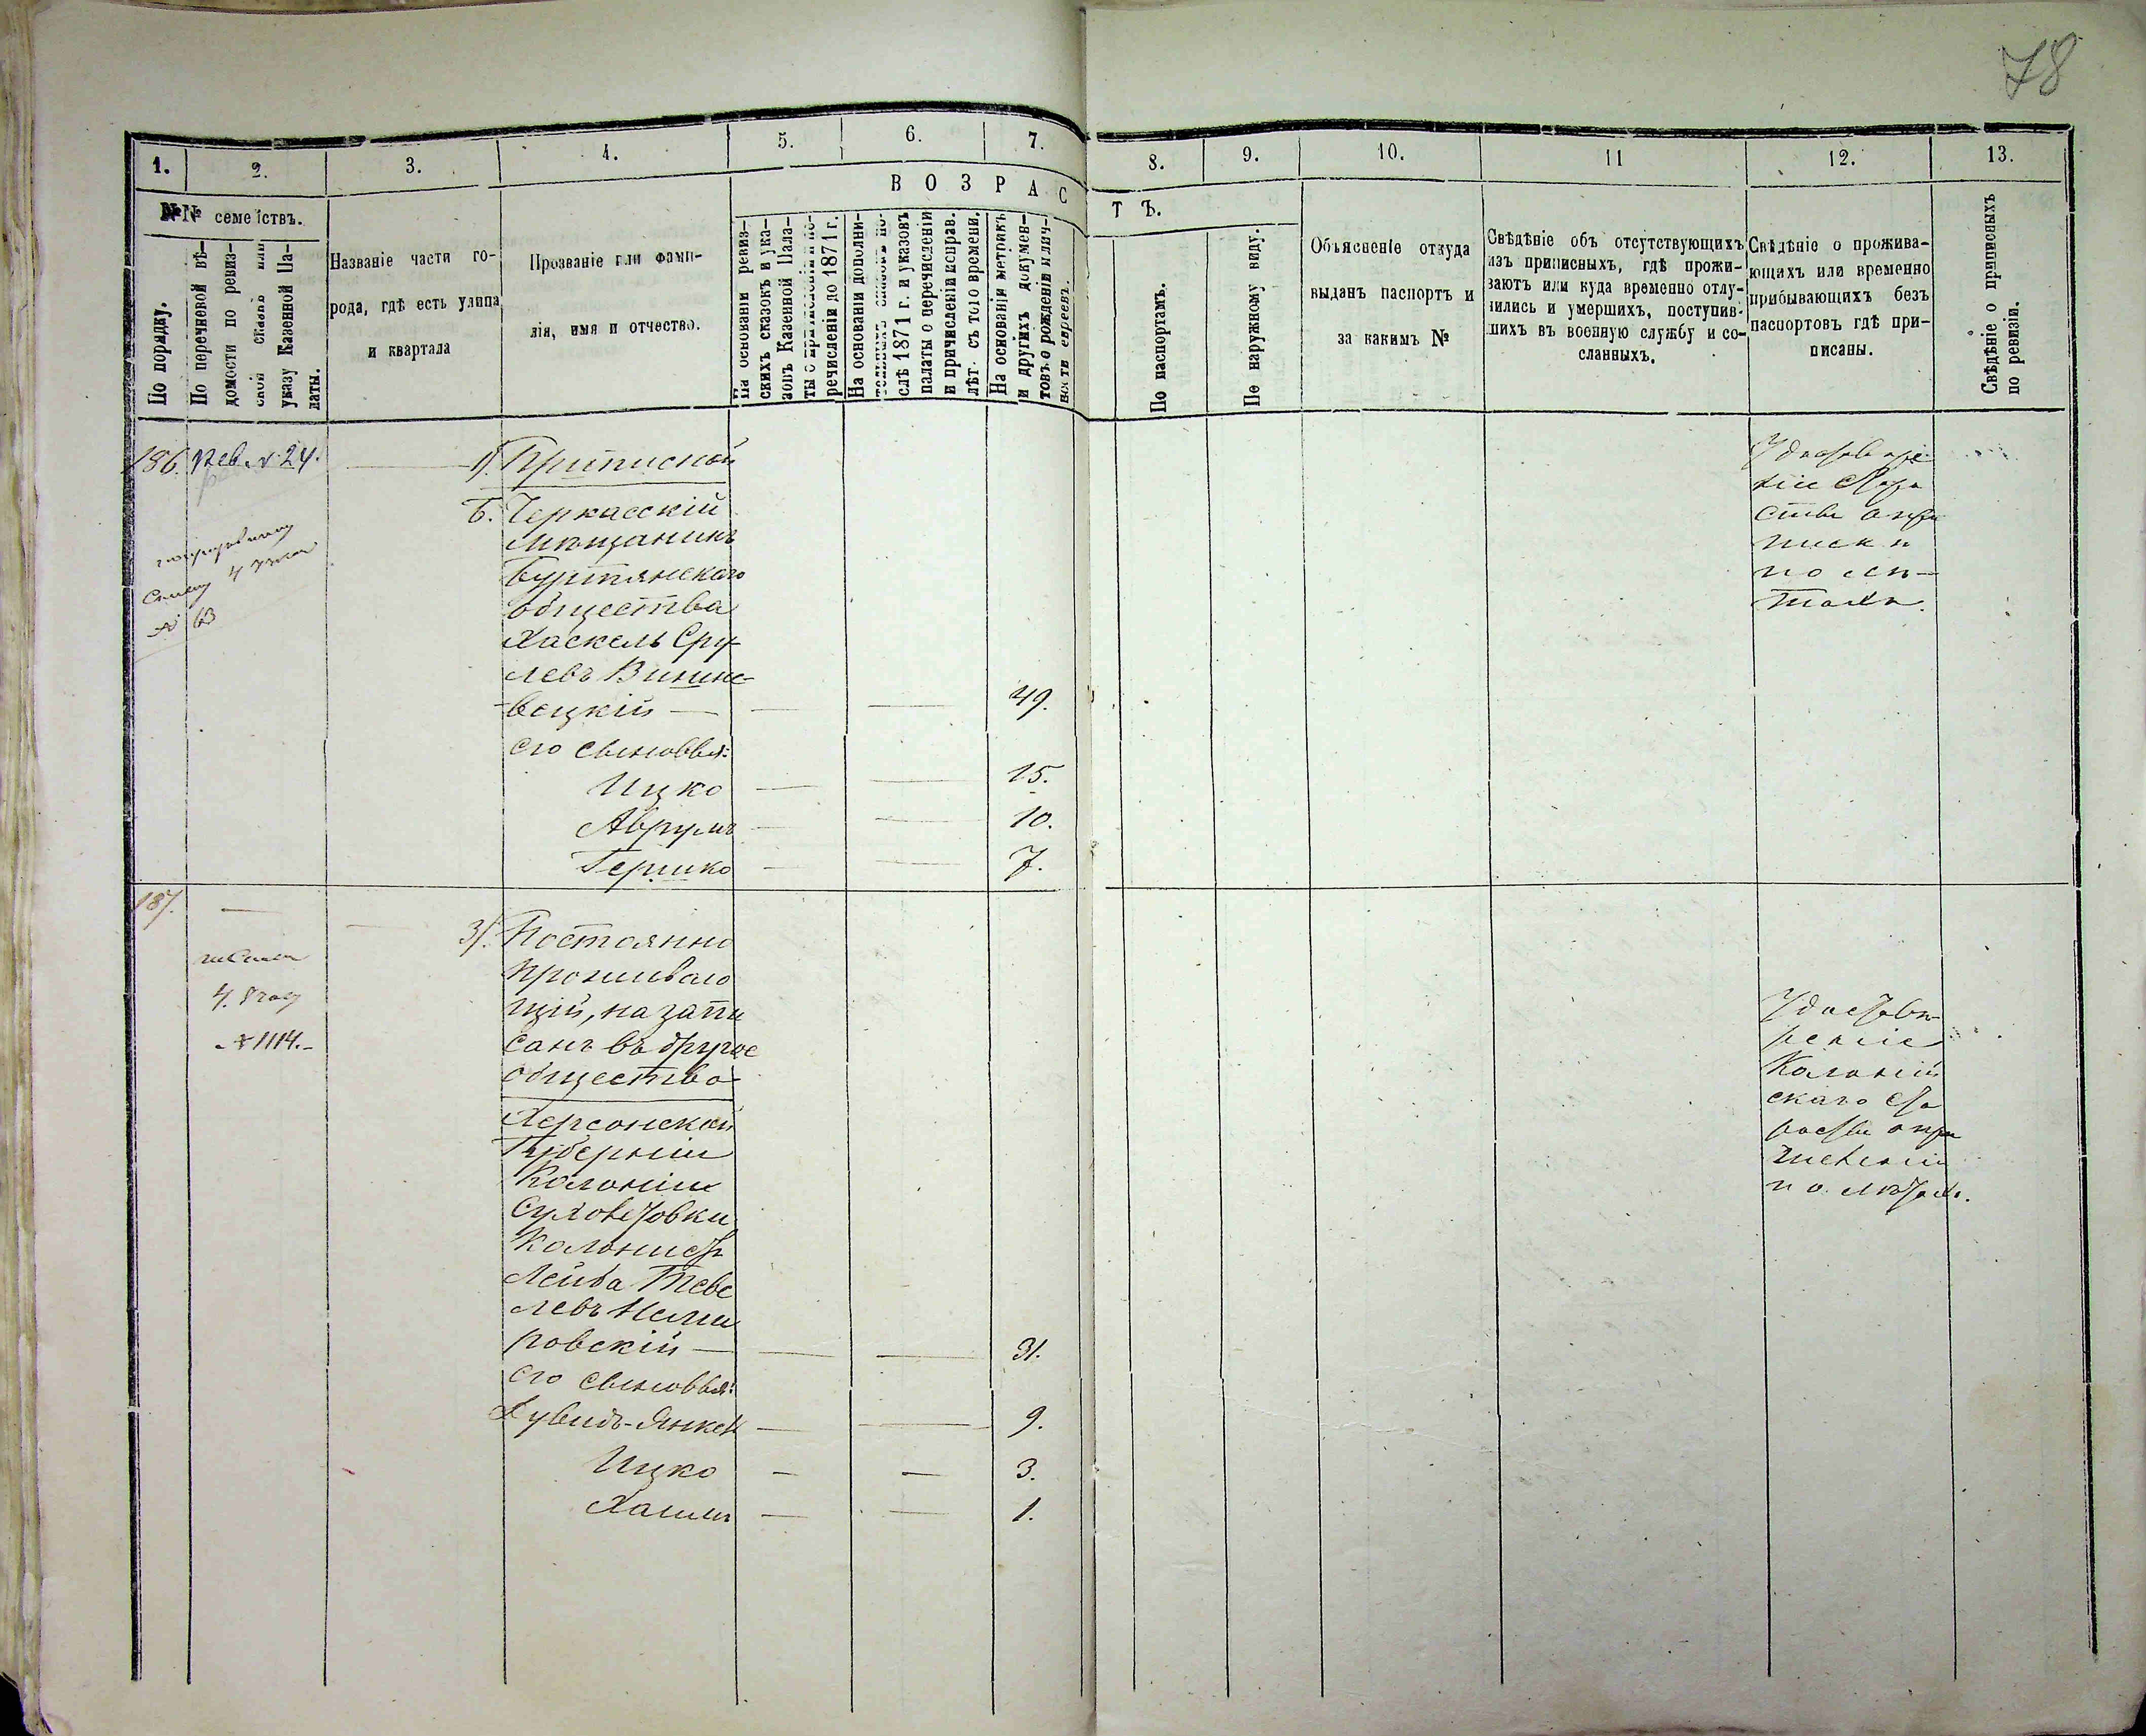 78
1. 2. 3. 4. 5. 6. 7. 8. 9. 10. 11 12. 13.
В О З Р А С Т Ъ.
№№ семействъ.
По порядку.
По перечневой вѣ-
домости по ревиз-
ской сказкѣ или
указу Казенной Па-
латы.
Названіе части го-
рода, гдѣ есть улица
и квартала
Прозваніе или фами-
лія, имя и отчество.
На основаніи ревиз-
скихъ сказокъ и ука-
зовъ Казенной Пала-
ты о
речисленіи до 1871 г.
На основаніи дополни-
тельныхъ
слѣ 1871 г. и указовъ
палаты о перечисленіи
и причисленіи исправ.
лѣт. съ того времени.
На основаніи метрикъ
и другихъ докумен-
товъ о рожденіи и лич-
ности евреевъ.
По паспортамъ.
По наружному виду.
Объясненіе откуда
выданъ паспортъ и
за какимъ №
Свѣдѣніе объ отсутствующихъ
изъ приписныхъ, гдѣ прожи-
ваютъ или куда временно отлу-
чились и умершихъ, поступив-
шихъ въ военную службу и со-
сланныхъ.
Свѣдѣніе о прожива-
ющихъ или временно
прибывающихъ безъ
паспортовъ гдѣ при-
писаны.
Свѣдѣніе о приписныхъ
по ревизіи.
186. Рев. № 24. Приписной
Б. Черкасскій
мѣщанинъ
Буртянскаго
общества
Хаскель Сру
левъ Вишне-
вецкій — — — 49.
его сыновья:
Ицко — — 15.
Аврумъ — — 10.
Гершко — — 7.
№ 63
187. — 3/. Постоянно
проживаю
щій, на запи
санъ въ другое
общество
Херсонской
Губерніи
Колоніи
Колонистъ
Лейба Теве
левъ Неми
ровскій — — — 31.
его сыновья:
Янкель — — 9.
Ицко — — 3.
Хаимъ — — 1.
№ 1114.
Удостовѣ
реніе
по лѣтахъ.